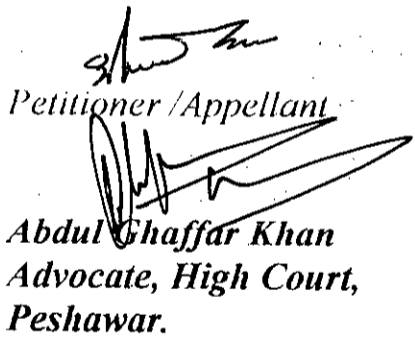 Petitioner /Appellant
Abdul Ghaffar Khan
Advocate, High Court,
Peshawar.